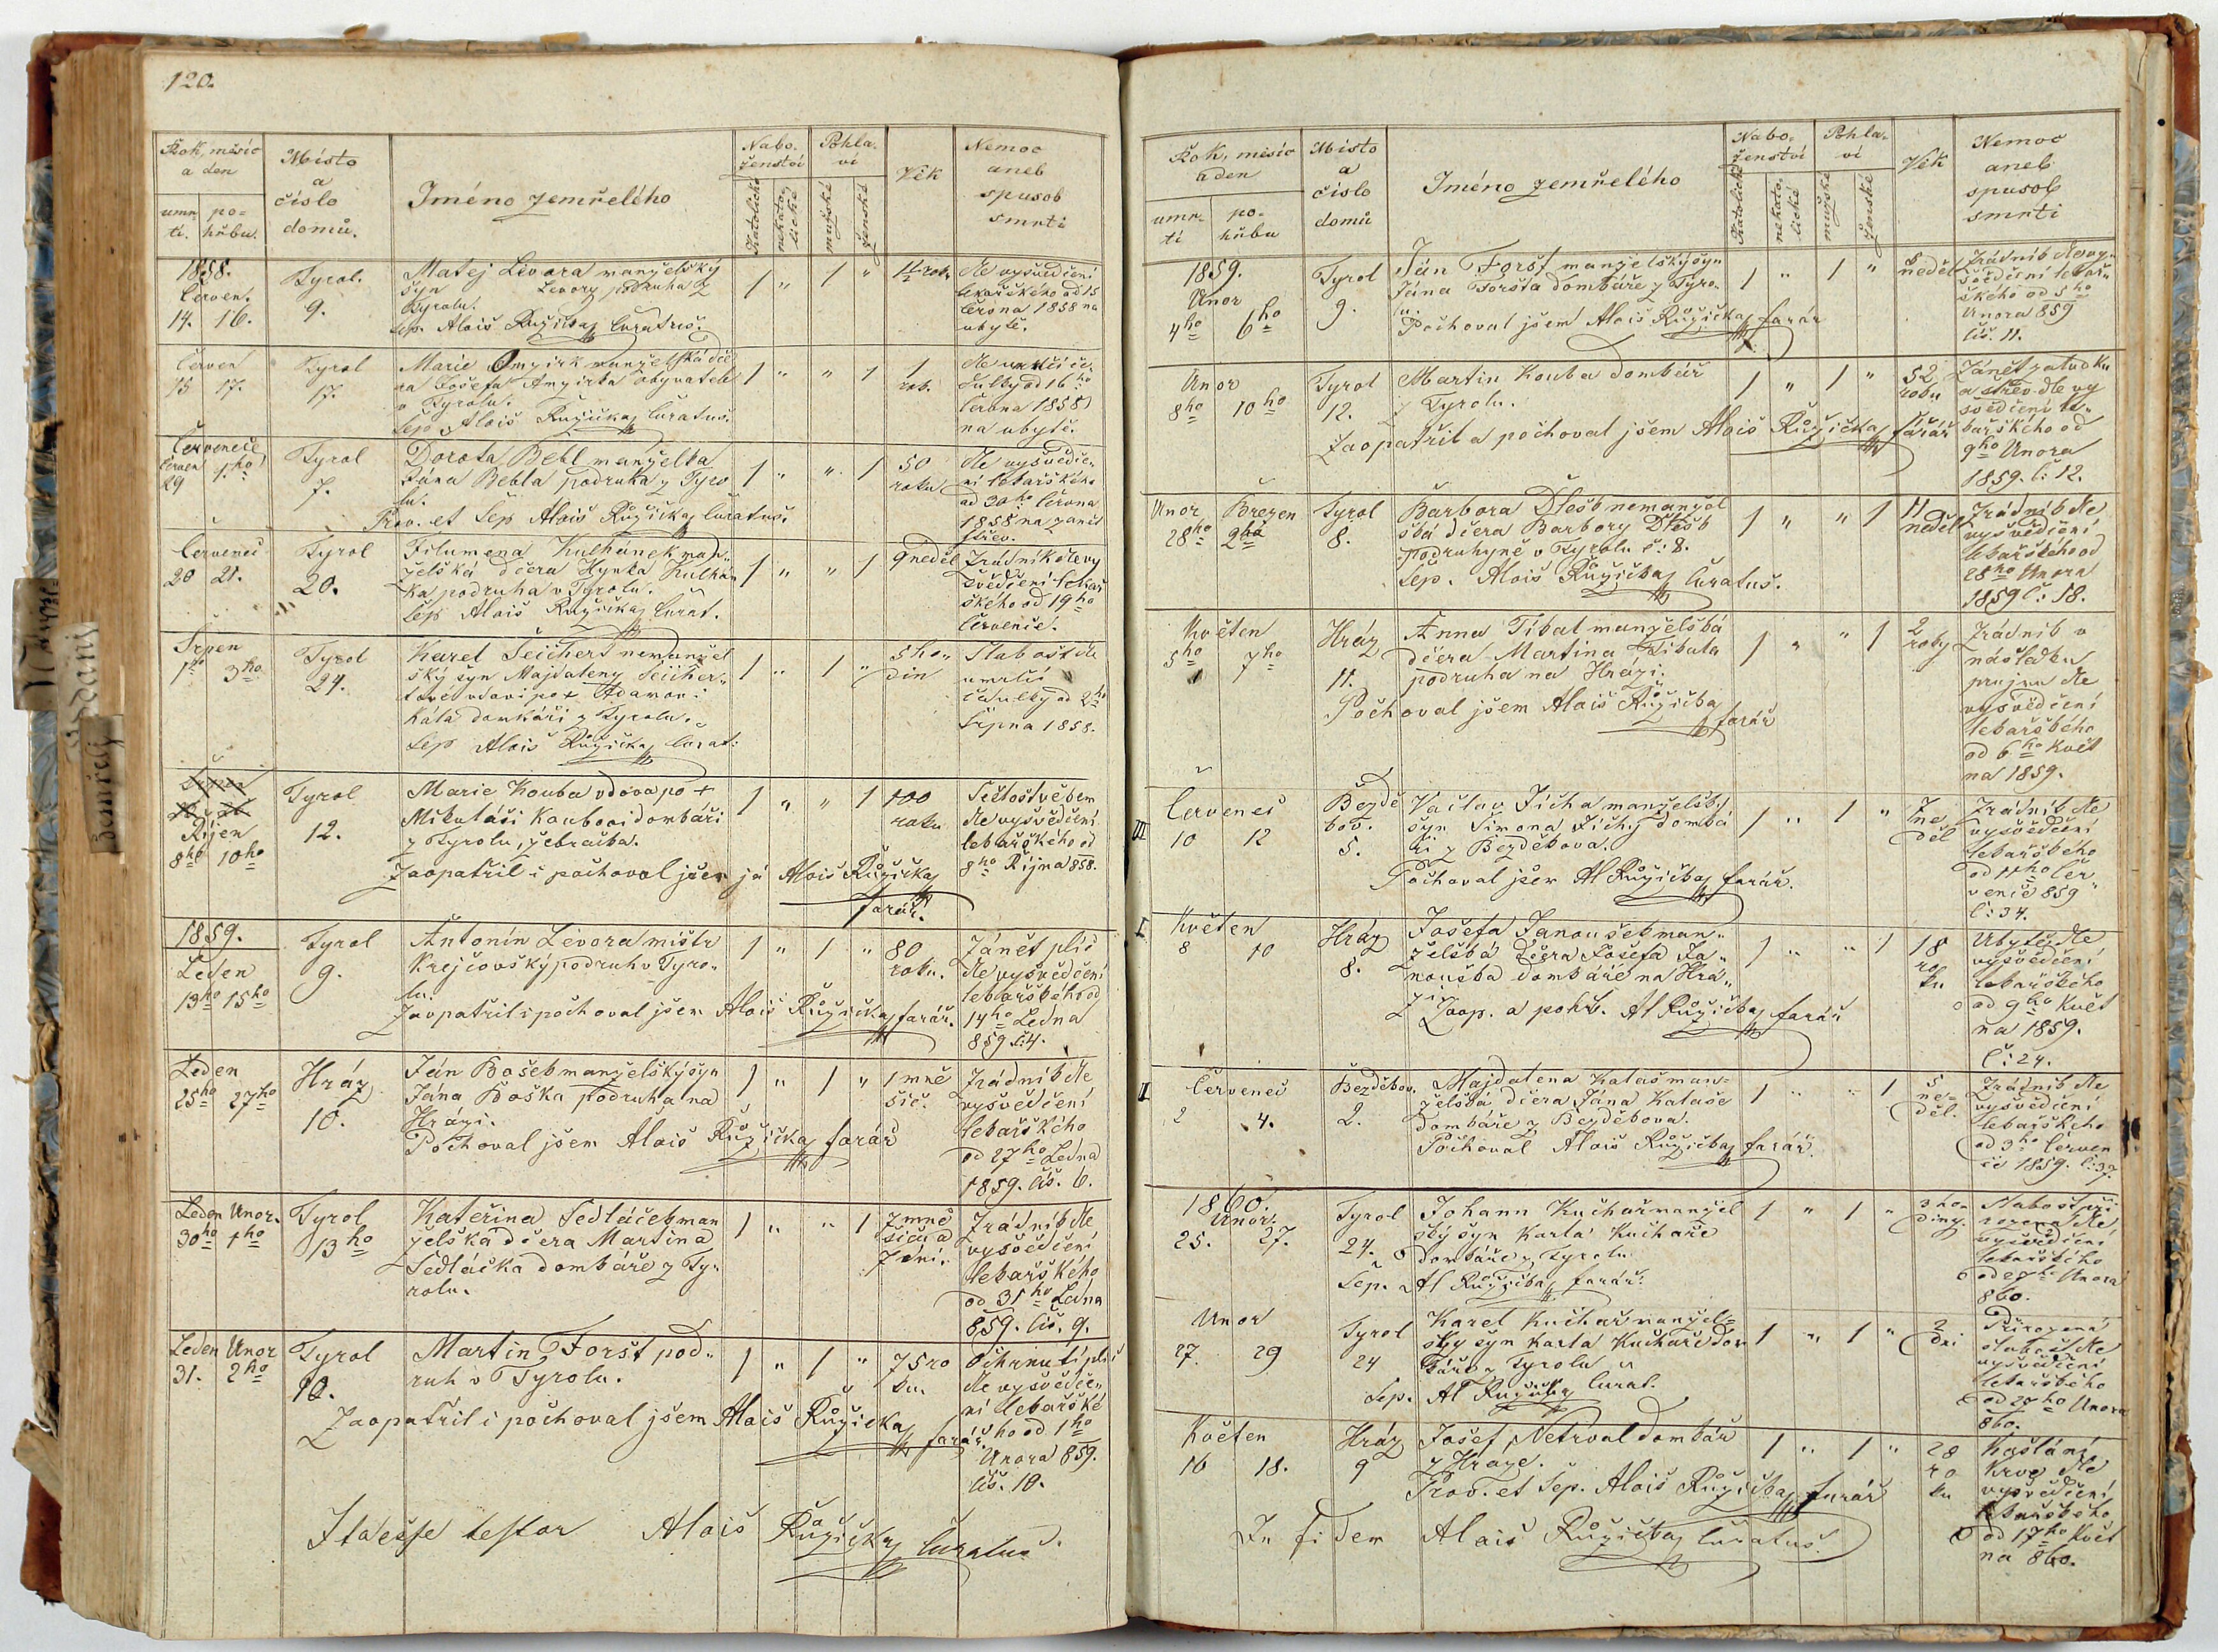 120.
Rok, měsíc
a den
umr-
tí.
po-
hřbu.
Místo
a
číslo
domů.
Jméno zemřelého
Nabo-
ženství
Katolické
nekato-
lické
Pohla-
ví
mužské
ženské
Věk
Nemoc
aneb
spusob
smrti
1858.
Červen.
14. 16.
Tyrol.
9.
Matej Livora manželský
syn Livory podruha z
Tyrolu.
Sep. Alois Růžička Curatus.
1 " 1 "
dle vysvědčení
lékařského od 15
Června 1858 na
ubytě.
Červen
15 17.
Tyrol
17.
Marie
ra Josefa obyvatele
v Tyrolu.
Sep. Alois Růžička Curatus.
1 " " 1
1
roku
dle umrlčí ce-
dulky od 16 ho
Června 1858
na ubytě.
Červenec
Červen 1. ho
29
Tyrol
7.
Dorota Bebl manželka
Jána Bebla podruha z Tyro
lu.
Prov. et Sep. Alois Růžička Curatus.
1 " " 1
50
roku
dle vysvědče-
ní lékařského
od 30 ho Června
1858 na zanět
střev.
Červenec
20 21.
Tyrol
20.
Filumena Kulhánek man-
želská dcera Hynka Kulhán
ka podruha v Tyrolu.
Sep. Alois Růžička Curat.
1 " " 1
9 neděl
Zrádník dle vy
svědčení lékař
ského od 19 ho
Července.
Srpen
1 ho 3 ho
Tyrol
24.
Karel Seichert nemanžel
ský syn Majdaleny Seicher-
tové vdovi po + Adamovi
domkáři z Tyrolu.
Sep. Alois Růžička Curat.
1 " 1 "
5 ho-
din
Slabost dle
umrlčí
cedulky od 2 ho
Srpna 1858.
Srpen
Říjen
8 ho 10 ho
Tyrol
12.
Marie Kouba vdova po +
Mikuláši Koubovi domkáři
z Tyrolu, žebračka.
Zaopatřil i pochoval jsem já Alois Růžička
farář.
1 " " 1
100
roku
Sešlost věkem
dle vysvědčení
lekařského od
8 ho Října 858.
1859.
Leden
13 ho 15 ho
Tyrol
9.
Antonín Livora mistr
Krejčovský podruh v Tyro-
lu.
Zaopatřil i pochoval jsem Alois Růžička farář.
1 " 1 "
80
roku.
Zánět plic
dle vysvědčení
lekařského od
14 ho Ledna
859 č: 4.
Leden
25 ho 27 ho
Hráz
10.
Ján Bošek manželský syn
Jána Boška podruha na
Hrázi.
Pochoval jsem Alois Růžička farář
1 " 1 "
1 mě
síc.
Zrádník dle
vysvědčení
lekařského
od 27 ho Ledna
1859. čís. 6.
Leden Unor.
30 ho 1 ho
Tyrol
13 ho
Kateřina Sedláček man
želská dcera Martina
Sedláčka domkáře z Ty-
rolu.
1 " " 1
7 mě
síců a
7 dní.
Zrádník dle
vysvědčení
lekařského
od 31 ho Ledna
859. čís. 9.
Leden Unor
31. 2 ho
Tyrol
10.
Martin Foršt pod-
ruh v Tyrolu.
Zaopatřil i pochoval jsem Alois Růžička farář.
1 " 1 "
75 ro
ku.
Ochrnutí plic
dle vysvědče-
ní lekařské
ho od 1 ho
Unora 859.
čís. 10.
Ita esse testor Alois Růžička Curatus.
Rok, měsíc
a den
umr-
tí
po-
hřbu
Místo
a
číslo
domů
Jméno zemřelého
Nabo-
ženství
Katolické
nekato-
lické
Pohla-
ví
mužské
ženské
Věk
Nemoc
aneb
spusob
smrti
1859.
Unor
4 ho 6 ho
Tyrol
9.
Ján Foršt manželský syn
Jána Foršta domkáře z Tyro-
lu.
Pochoval jsem Alois Růžička farář
1 " 1 "
neděl
Zrádník dle vy-
svědčení lekař-
ského od 5 ho
Unora 859
čís. 11.
Unor
8 ho 10 ho
Tyrol
12.
Martin Kouba domkář
z Tyrolu.
Zaopatřil a pochoval jsem Alois Růžička farář
1 " 1 "
52
roku
Zánět žaludku
a střev dle vy
svědčení le-
kařského od
9 ho Unora
1859. č: 12.
Unor Březen
28 ho 2 ho
Tyrol
8.
Barbora Dlesk nemanžel
ská dcera Barbory Dlesk
podruhyně v Tyrolu č: 8.
Sep. Alois Růžička Curatus.
1 " " 1
11
neděl
Zrádník dle
vysvědčení
lekařského od
28 ho Unora
1859 č: 18.
Květen
5 ho 7 ho
Hráz
11.
Anna Tibal manželská
dcera Martina Tibala
podruha na Hrázi.
Pochoval jsem Alois Růžička
farář
1 " " 1
2
roky
Zrádník v
následku
prujmu dle
vysvědčení
lekařského
od 6 ho Květ
na 1859.
III
Červenec
10 12
Bezdě
kov.
5.
Václav Jícha manželský
syn Šimona Jíchy domká
ři z Bezděkova.
Pochoval jsem Al Růžička farář.
1 " 1 "
7
ne
děl
Zrádník dle
vysvědčení
lekařského
od 11 ho Čer-
vence 859
č: 34.
I
Květen
8 10
Hráz
8.
Josefa Janoušek man-
želská dcera Josefa Ja-
nouška domkáře na Hrá-
zi Zaop. a pohř. Al Růžička farář
1 " " 1
18
ro
ku
Ubytě dle
vysvědčení
lekařského
od 9 ho Květ
na 1859.
č: 24.
II
Červenec
2 4.
Bezděkov.
2.
Majdalena Kalaš man-
želská dcera Jána Kalaše
domkáře z Bezděkova.
Pochoval Alois Růžička farář.
1 " " 1
5
ne-
děl.
Zrádník dle
vysvědčení
lekařského
od 3 ho Červen
ce 1859. č: 37.
1860.
Unor.
25. 27.
Tyrol
24.
Johann Kuchař manžel
ský syn Karla Kuchaře
domkáře z Tyrolu.
Sep. Al Růžička farář.
1 " 1 "
3 ho-
diny.
Slabost při
rozená dle
vysvědčení
lekařského
Unora
860.
Unor
27. 29
Tyrol
24
Karel Kuchař manžel-
ský syn Karla Kuchaře dom
káře z Tyrolu
Sep. Al Růžička Curat.
1 " 1 "
2
dni
Přirozená
slabost dle
vysvědčení
lekařského
od 28 ho Unora
860.
Květen
16 18.
Hráz
9
Josef Netrval domkář
z Hráze.
Prov. et Sep. Alois Růžička farář
1 " 1 "
28
ro
ku
Kašlání
krve dle
vysvědčení
lekařského
od 17 ho Květ
na 860.
In fidem Alois Růžička Curatus.